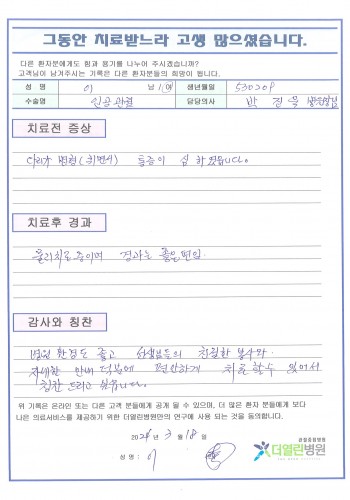 그동안 치료받느라 고생 많으셨습니다.
다른 환자분에게도 힘과 용기를 나누어 주시겠습니까?
고객님이 남겨주시는 기록은 다른 환자분들의 희망이 됩니다.
성 명 이 남/여 생년월일 530208
수술명 인공관절 담당의사 박진욱 병원장님
치료전 증상
다리가 통증이 심하였습니다.
치료후 경과
물리치료중이며 경과는 좋은편임.
감사와 칭찬
병원 환경도 좋고 선생님들의 친절한 봉사와
자세한 안내 덕분에 편안하게 치료 할수 있어서
칭찬 드리고 싶습니다.
위 기록은 온라인 또는 다른 고객 분들에게 공개 될 수 있으며, 더 많은 환자 분들에게 보다
나은 의료서비스를 제공하기 위한 더열린병원만의 연구에 사용 되는 것을 동의합니다.
2024년 3월 18일
성 명 : 이
관절중점병원
더열린병원